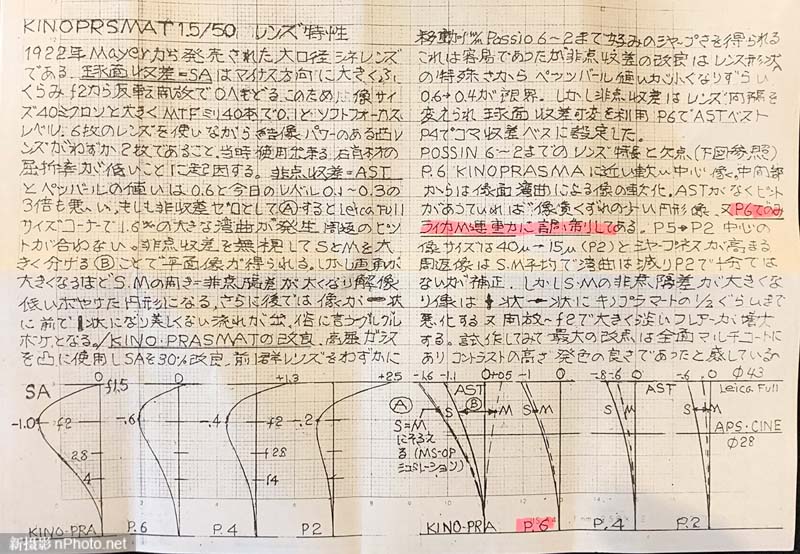 KINOPRSMAT 1.5/50 レンズ特性
1922年Mayerから発売された大口径シネレンズ
である。球面収差=SAはマイナス方向に大きくふ
くらみf2から反転開放で0へもどる。このため像サイ
ズ40ミクロンと大きくMTFミリ40本で0.1とソフトフォーカス
レベル。6枚のレンズを使いながら像パワーのある凸レ
ンズがわずか2枚であること、当時使用出来る硝材の
屈折率が低いことに起因する。非点収差=AST
とペッツバールの値いは0.6と今日のレベル0.1~0.3の
3倍も悪い。もしも非収差ゼロとしてⒶするとLeica Full
サイズコーナで1.6%の大きな湾曲が発生 周辺のピン
トが合わない。非点収差を無視してSとMを大
きく分けるⒷことで平面像が得られる。しかし画角が
大きくなるほどS.Mの開き=非点隔差が大くなり解像
低いボヤけた円形になる。さらに後では像が ー状
に前でl状になり美しくない流れが出、俗に言うグルグル
ボケとなる。/KINO-PRASMATの改良、高屈ガラス
を凸に使用しSAを30%改良、前後群レンズをわずかに
移動 Possio 6~2まで好みのシャープさを得られる
これは容易であったが非点収差の改良はレンズ形状
の特殊さからペッツバール値いが小くなりずらい
0.6→0.4が限界。しかし非点収差はレンズ間隔を
変えられ球面収差可変を利用P6でASTベスト
P4でコマ収差ベスに設定した。
POSSIN 6~2までのレンズ特長と欠点(下図参照)
P.6 KINOPRASMAに近しい軟い中心像。中間部
からは像面湾曲による像の重大化。ASTがなくピント
があっていれば像質くずれの少い円形像、又P6でのみ
ライカM連動カに調帯りしてある。P5→P2 中心の
像サイズは40μ→15μ(P2)とシャープネスが高まる
周辺像はS.M平均で湾曲は減りP2で十分では
ないが補正。しかしS.Mの非点隔差が大きくな
り像はl状→ー状にキノプラマートの1/2ぐらいまで
悪化する又開放~f2で大きく淡いフレアーカ増大
する。試作してみて最大の改点は全面マルチコートに
ありコントラストの高さ発色の良さであったと感している
SA 0 0 +1.3 +2.5
f1.5
-1.0 f2 -.6 -.4 f2 -.2
f2.8 f2.8
4 4
KINO-PRA P.6 P.4 P2
-1.6 -1.1 0 +0.5 -1 0 -.8 -.6 0 -.6 0 Φ43
AST AST Leica Full
Ⓐ S Ⓑ M S M S M S M
S=M
にそろえ
る(MS-OP
ミュレーション)
APS.CINE
Φ28
KINO-PRA P.6 P.4 P.2
新摄影 nPhoto.net